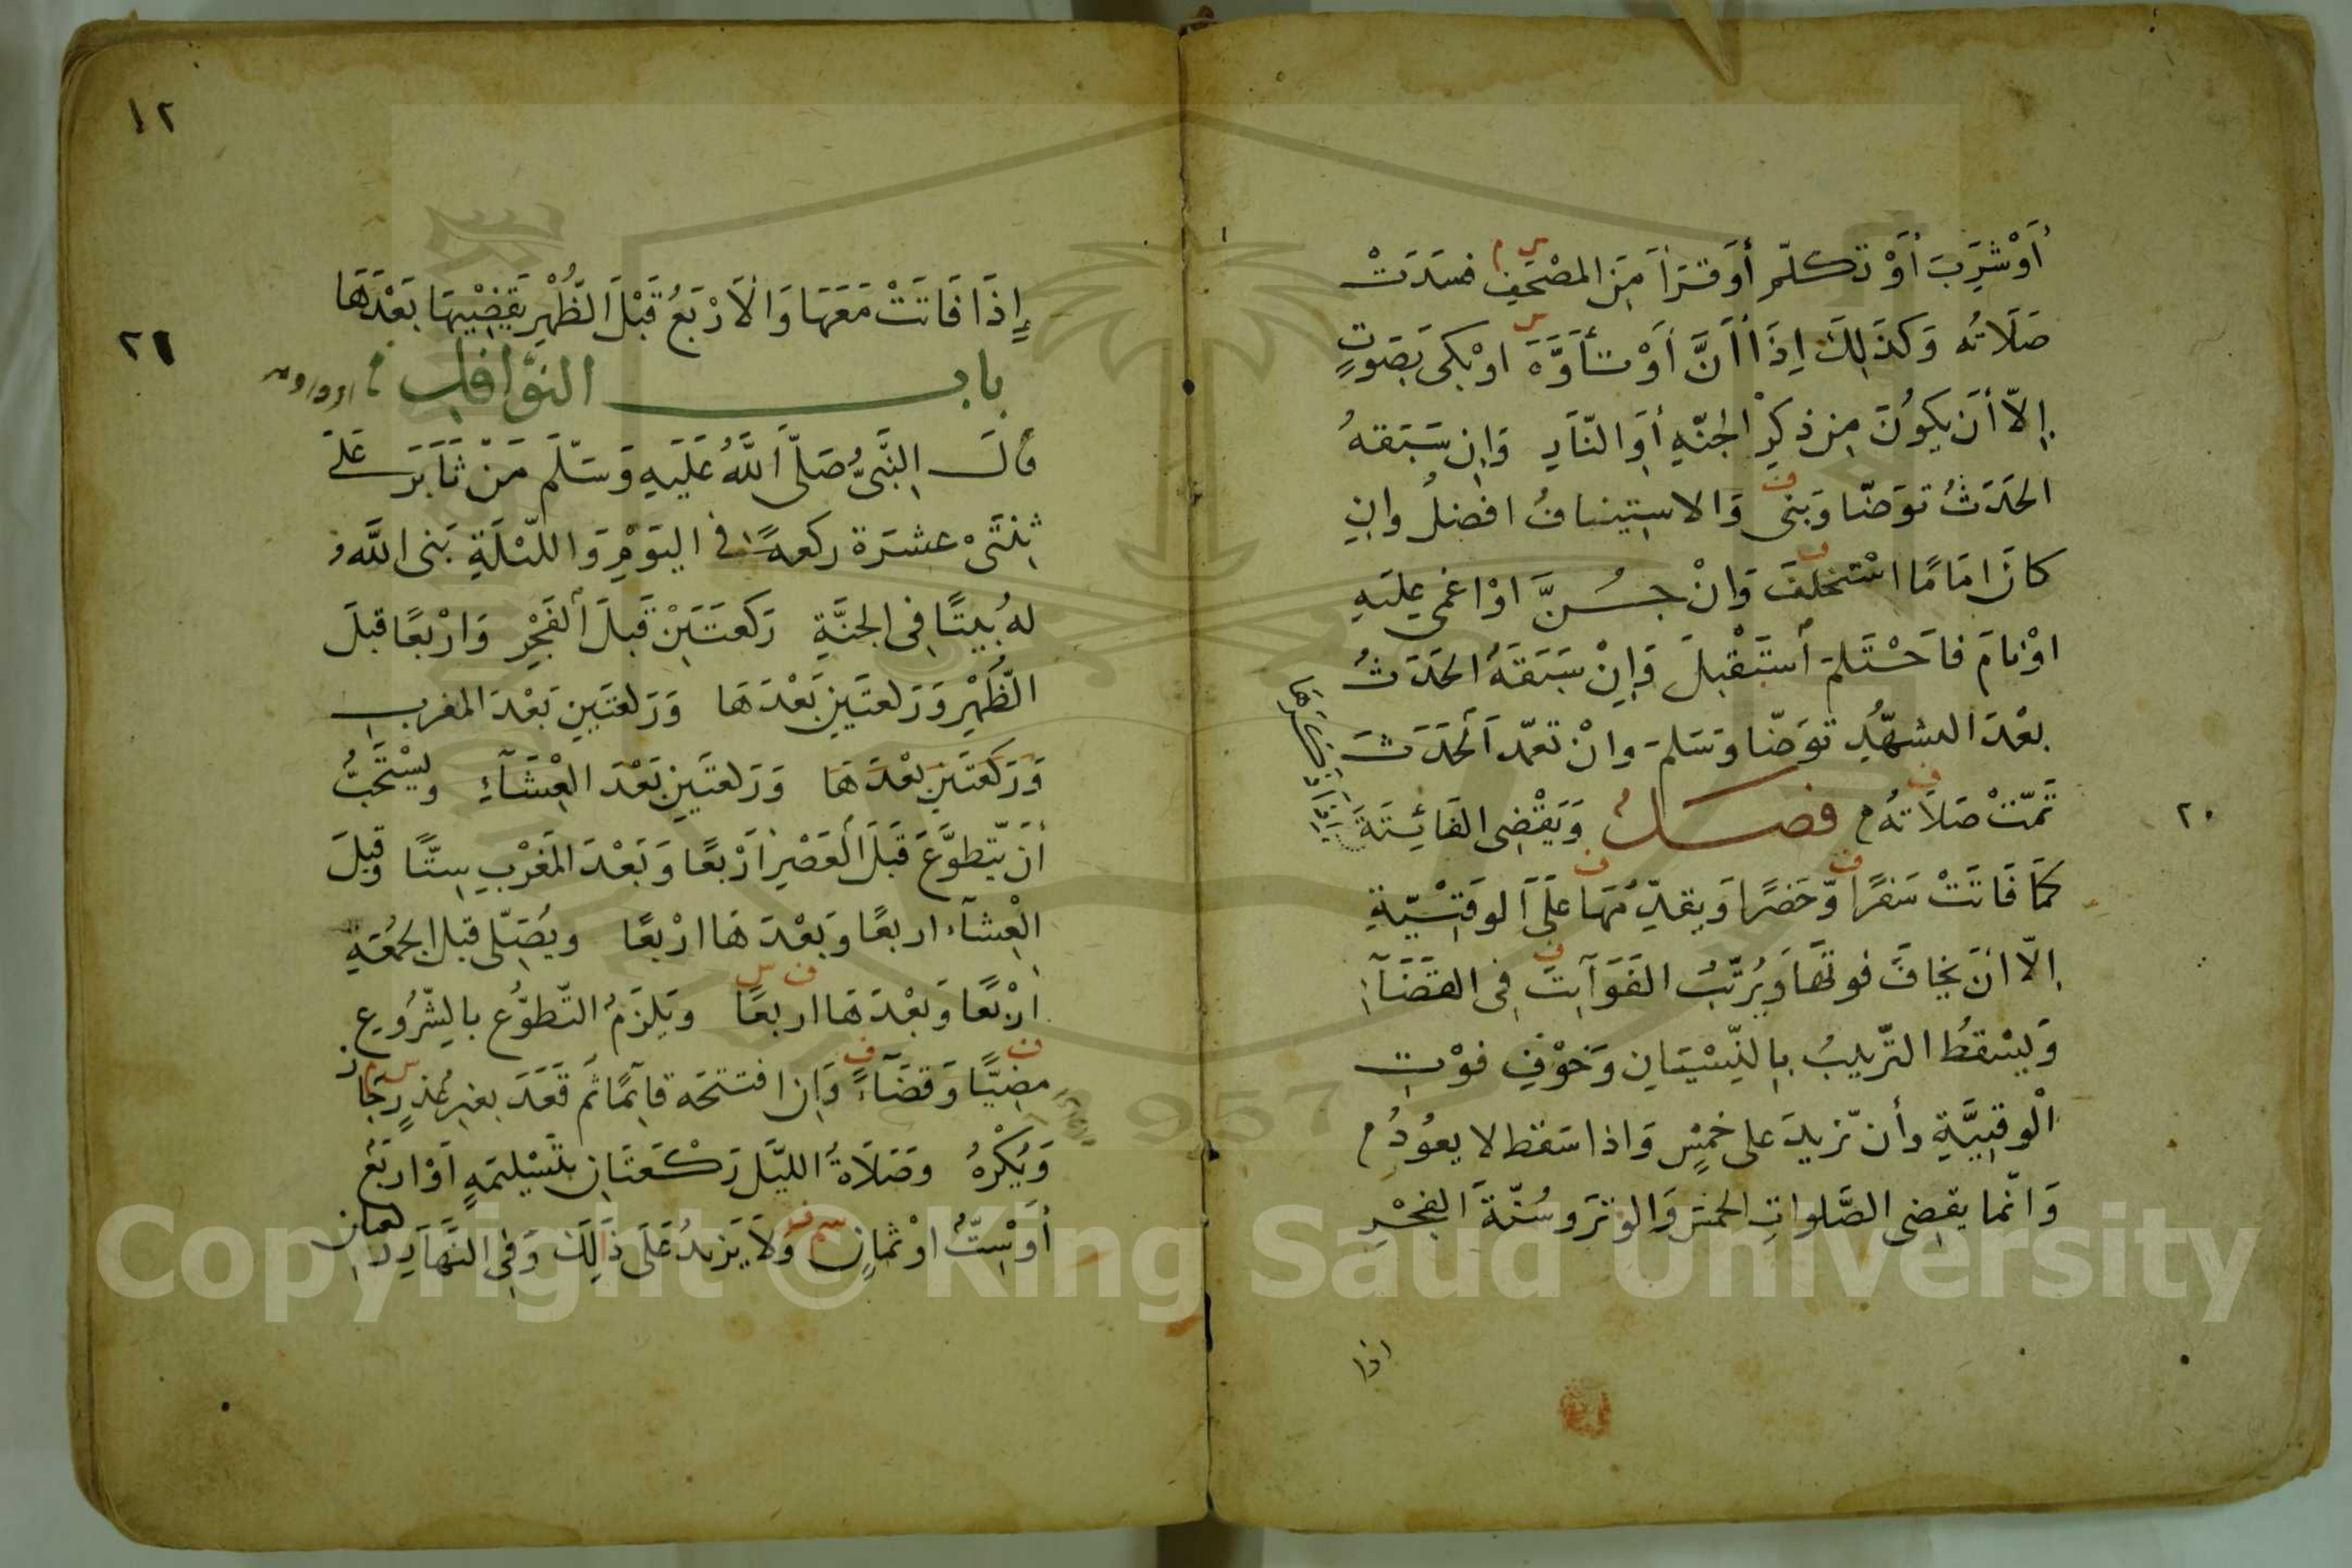 أَوْ شَرِبَ أَوْ تَكلّم أَوقَرَأ مِنَ المصْحَفِ فسَدَتْ
صَلَاتُه وَكَذَلِكَ اِذَا أَنَّ أَوْ تَأَوَّهَ اوْ بَكى بِصَوتٍ
إلاّ أن يكوُنَ مِن ذكرِ الجنّةِ أوِ النّارِ وَاِن سَبَقهُ
الحَدَثُ توَضّا وَبَنى وَالاستِينافُ افضلُ وانِ
كانَ امَامًا اسْتخلفَ وَانْ جُنَّ اوْ اغمِي عليَهِ
اوْ نامَ فاحْتَلمَ أستَقْبلَ وَاِنْ سَبَقَهُ الحَدَثُ
بعْدَ التشهّدِ توَضّا وَسَلمَ وانْ تعمّد اَلحَدَثَ
تَمّتْ صَلاَتهُ فصلُ وَيَقْضِى الفَائِتَةَ
كمَا فَاتَتْ سَفرًا وّحَضرًا وَيقدّمهَا عَلَى الوقتِيّةِ
اِلاّ انْ يخافَ فوتهَا وَيُرَتّبُ الفَوَآيِتَ فِى القضَآءِ
وَيَسْقطُ التّرتيبُ بِالنِّسْيَانِ وَخَوْفِ فوْتِ
الْوقتِيَّةِ وأن تّزيدَ على خمسٍ وَاذا سَقط لا يعوُدُ
وَانّما يقضِى الصَّلواتِ الخمسَ وَالوترَ وسُنّةَ الفجْرِ
اذا
٢٠
١٢
٢١
إِذَا فَاتَتْ مَعَهَا وَالاَرْبَعُ قَبْلَ الظُّهْرِ يَقضِيْهَا بَعْدَهَا
باب النوَّافل
قالَ النَّبىُّ صَلّى اللَّهُ عَلَيهِ وَسَلّمَ مَنْ ثَابَرَ عَلىَ
ثِنْتَىْ عشرَة ركعةً فى اليَوْمِ وَاللّيْلَةِ بَنى اللَّهُ
لهُ بيتًا فِى الجَنَّةِ رَكعَتَيْنِ قَبلَ الفَجْرِ وَارْبعًا قبلَ
الظُّهْرِ وَرَكعتَينِ بَعْدَهَا وَرَكعتَينِ بَعْدَ المغربِ
وَرَكعَتَينِ بعْدَهَا وَرَكعتَينِ بَعْدَ العِْشَآءِ ويسْتَحَبُّ
أنَ يّتطوَّعَ قَبَلَ العَصْرِ اَرْبعًا وَبَعْدَ المَغْرِبِ سِتًّا وقبلَ
العِْشآء اربعًا وَبَعْدَهَا ارْبعًا ويُصَلّى قبلَ الجمُعَةِ
ارْبعًا وَبَعْدَهَا اربعًا ويَلزَمُ التّطوُّع بِالشّرُوعِ
مضِيًّا وَقضَآءً وَاِن افتتحَه قآيمًا ثمَ قَعَدَ بغيرِ عُذرٍ جَازَ
وَيُكْرهُ وصَلاَةُ الليَّلِ رَكْعَتَانِ بتَسْليمَةٍ اَوْ اربَعٌ
أوْ سِتٌّ اوْ ثمانٍ وَلاَ يَزيدُ عَلَى ذَالِكَ وَفِى النَّهَارِ ركعتان
Copyright © King Saud University
1957